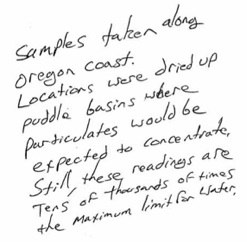 Samples taken along
oregon coast.
Locations were dried up
puddle basins where
particulates would be
expected to concentrate,
Still, these readings are
Tens of thousands of times
the Maximum limit for water.